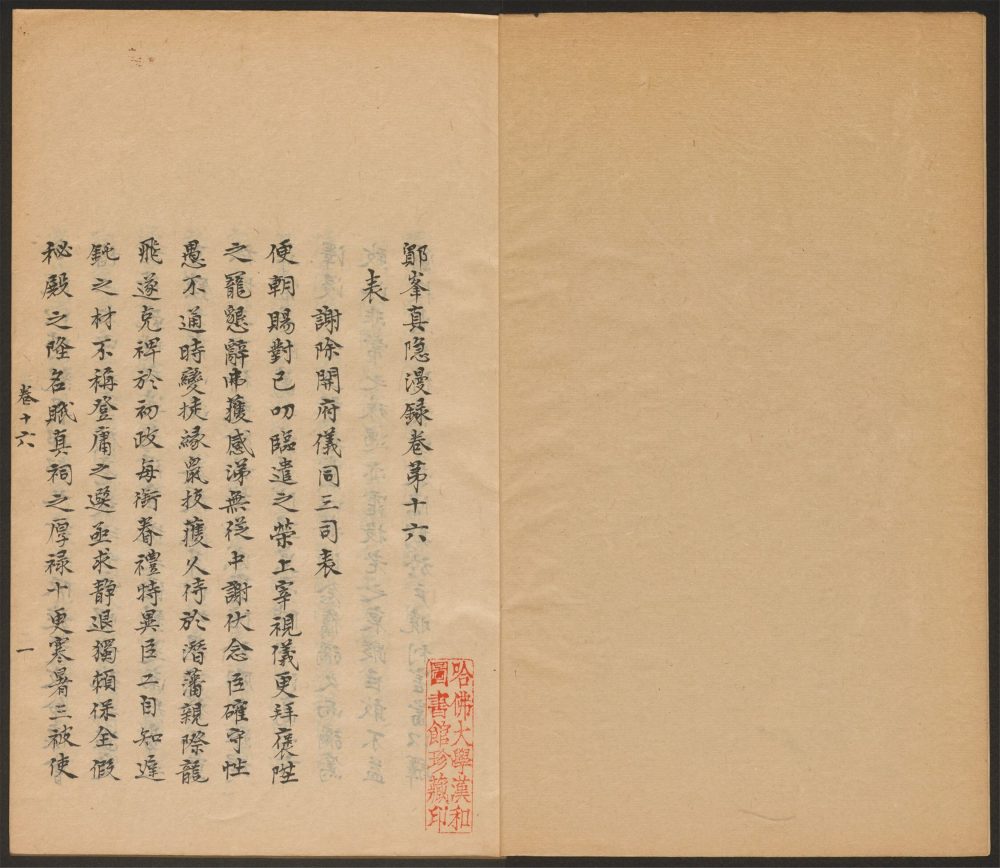 鄮峯真隐漫録卷苐十六
表
謝除開府儀同三司表
便朝賜對已叨臨遣之榮上宰視儀更拜襃陞
之寵懇辭弗獲感涕無從中謝伏念臣確守性
愚不通時變徒緣鼠技獲久侍於潛藩親際龍
飛遂克裨於初政每銜眷禮特異臣工自知遲
鈍之材不稱登庸之選亟求静退獨頼保全假
秘殿之隆名賦真祠之厚禄十更寒暑三被使
卷十六
一
哈佛大學漢和
圖書館珍藏印